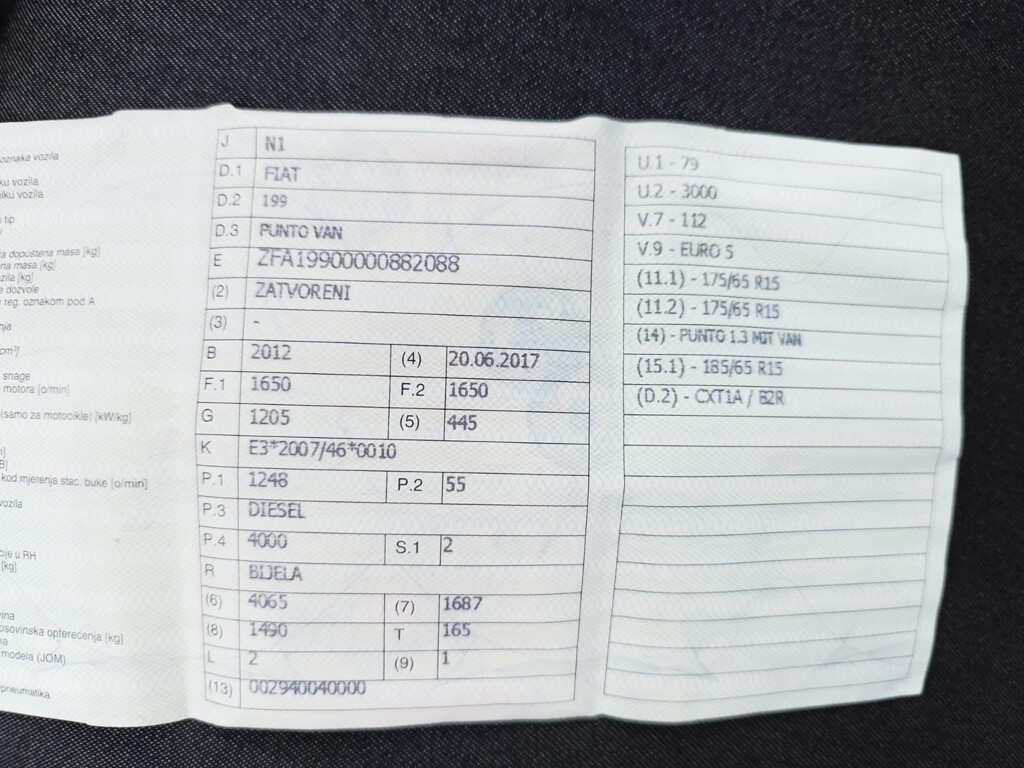 oznaka vozila
ku vozila
iku vozila
tip
a dopuštena masa [kg]
na masa [kg]
zila [kg]
e dozvole
reg. oznakom pod A
nja
cm³]
snage
motora [o/min]
(samo za motocikle) [kW/kg]
B]
kod mjerenja stac. buke [o/min]
vozila
cije u RH
[kg]
vina
osovinska opterećenja [kg]
ka
modela (JOM)
pneumatika
J N1
D.1 FIAT
D.2 199
D.3 PUNTO VAN
E ZFA19900000882088
(2) ZATVORENI
(3) -
B 2012 (4) 20.06.2017
F.1 1650 F.2 1650
G 1205 (5) 445
K E3*2007/46*0010
P.1 1248 P.2 55
P.3 DIESEL
P.4 4000 S.1 2
R BIJELA
(6) 4065 (7) 1687
(8) 1490 T 165
L 2 (9) 1
(13) 002940040000
U.1 - 79
U.2 - 3000
V.7 - 112
V.9 - EURO 5
(11.1) - 175/65 R15
(11.2) - 175/65 R15
(14) - PUNTO 1.3 MJT VAN
(15.1) - 185/65 R15
(D.2) - CXT1A / B2R